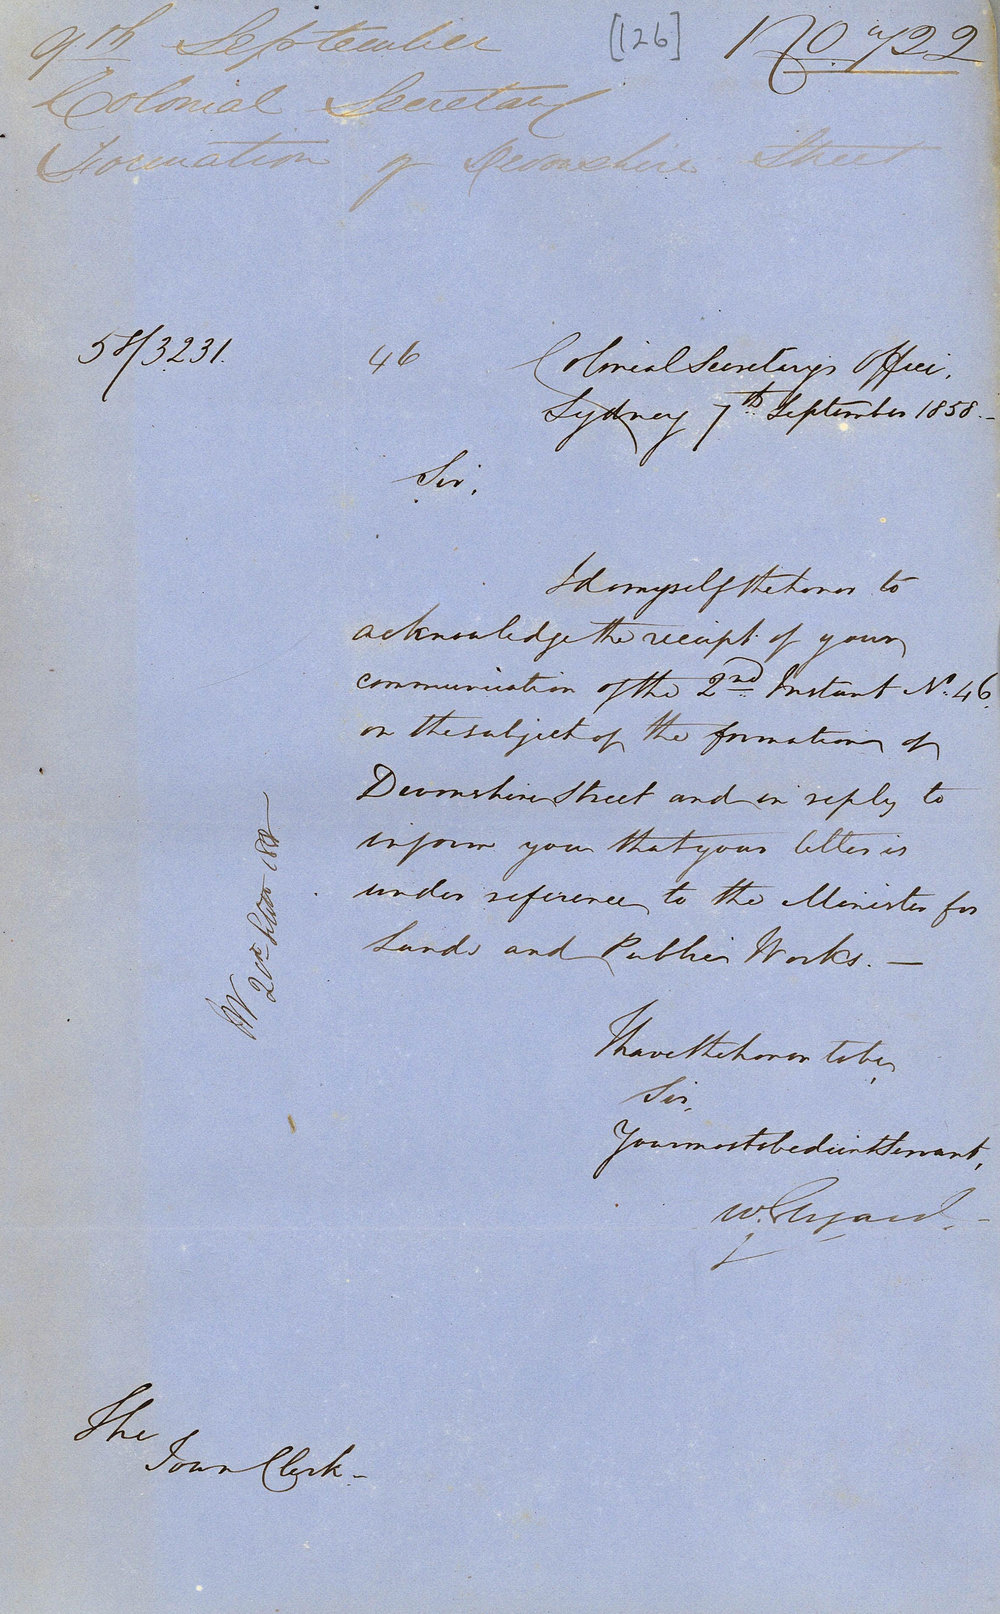 9th September [126] No 722
Colonial Secretary
Formation of Devonshire Street
58/3231. 46 Colonial Secretary's Office,
Sydney 7th September 1858.
Sir,
I do myself the honor to
acknowledge the receipt of your
communication of the 2nd Instant No. 46
on the subject of the formation of
Devonshire Street and in reply to
inform you that your letter is
under reference to the Minister for
Lands and Public Works. —
I have the honor to be,
Sir,
Your most obedient Servant,
W. Elyard.
The
Town Clerk